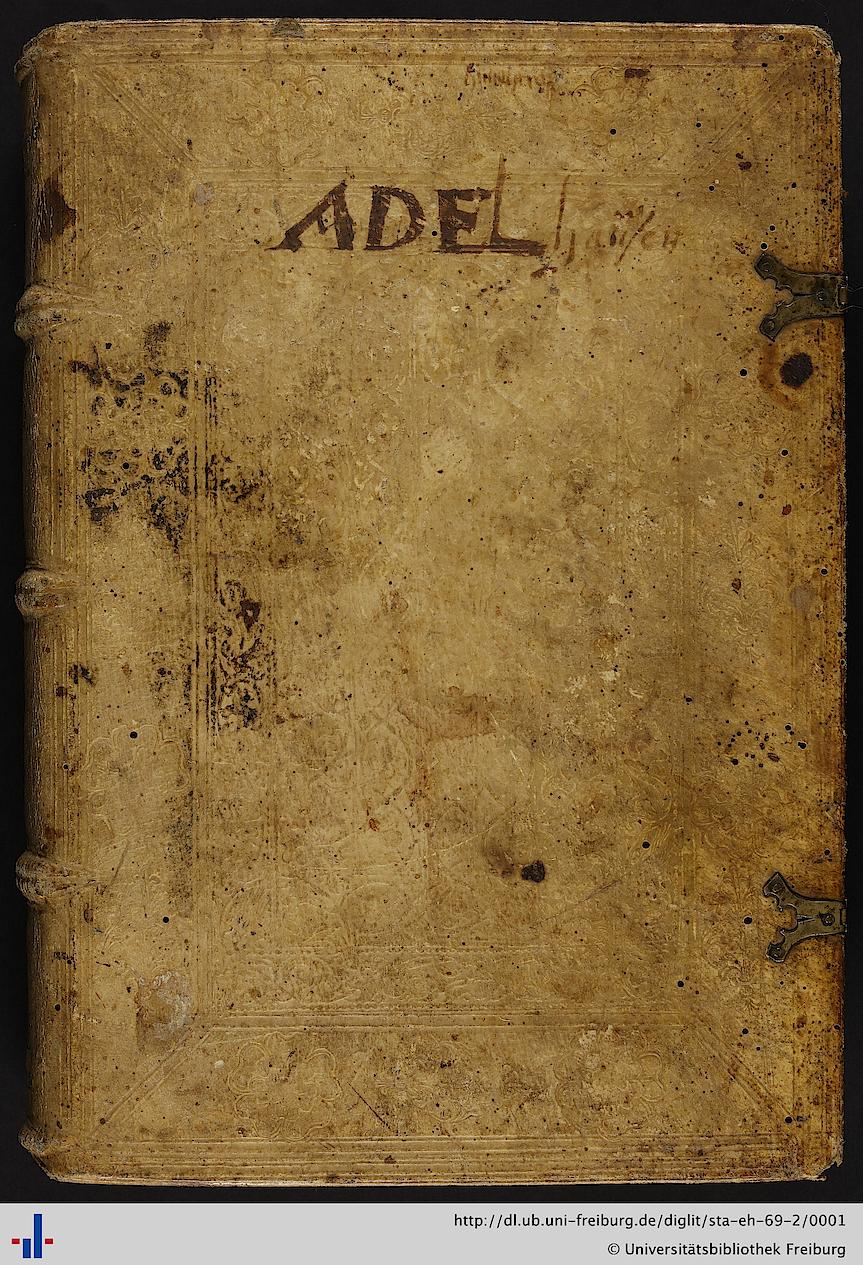 ADEL haüsen
http://dl.ub.uni-freiburg.de/diglit/sta-eh-69-2/0001
© Universitätsbibliothek Freiburg